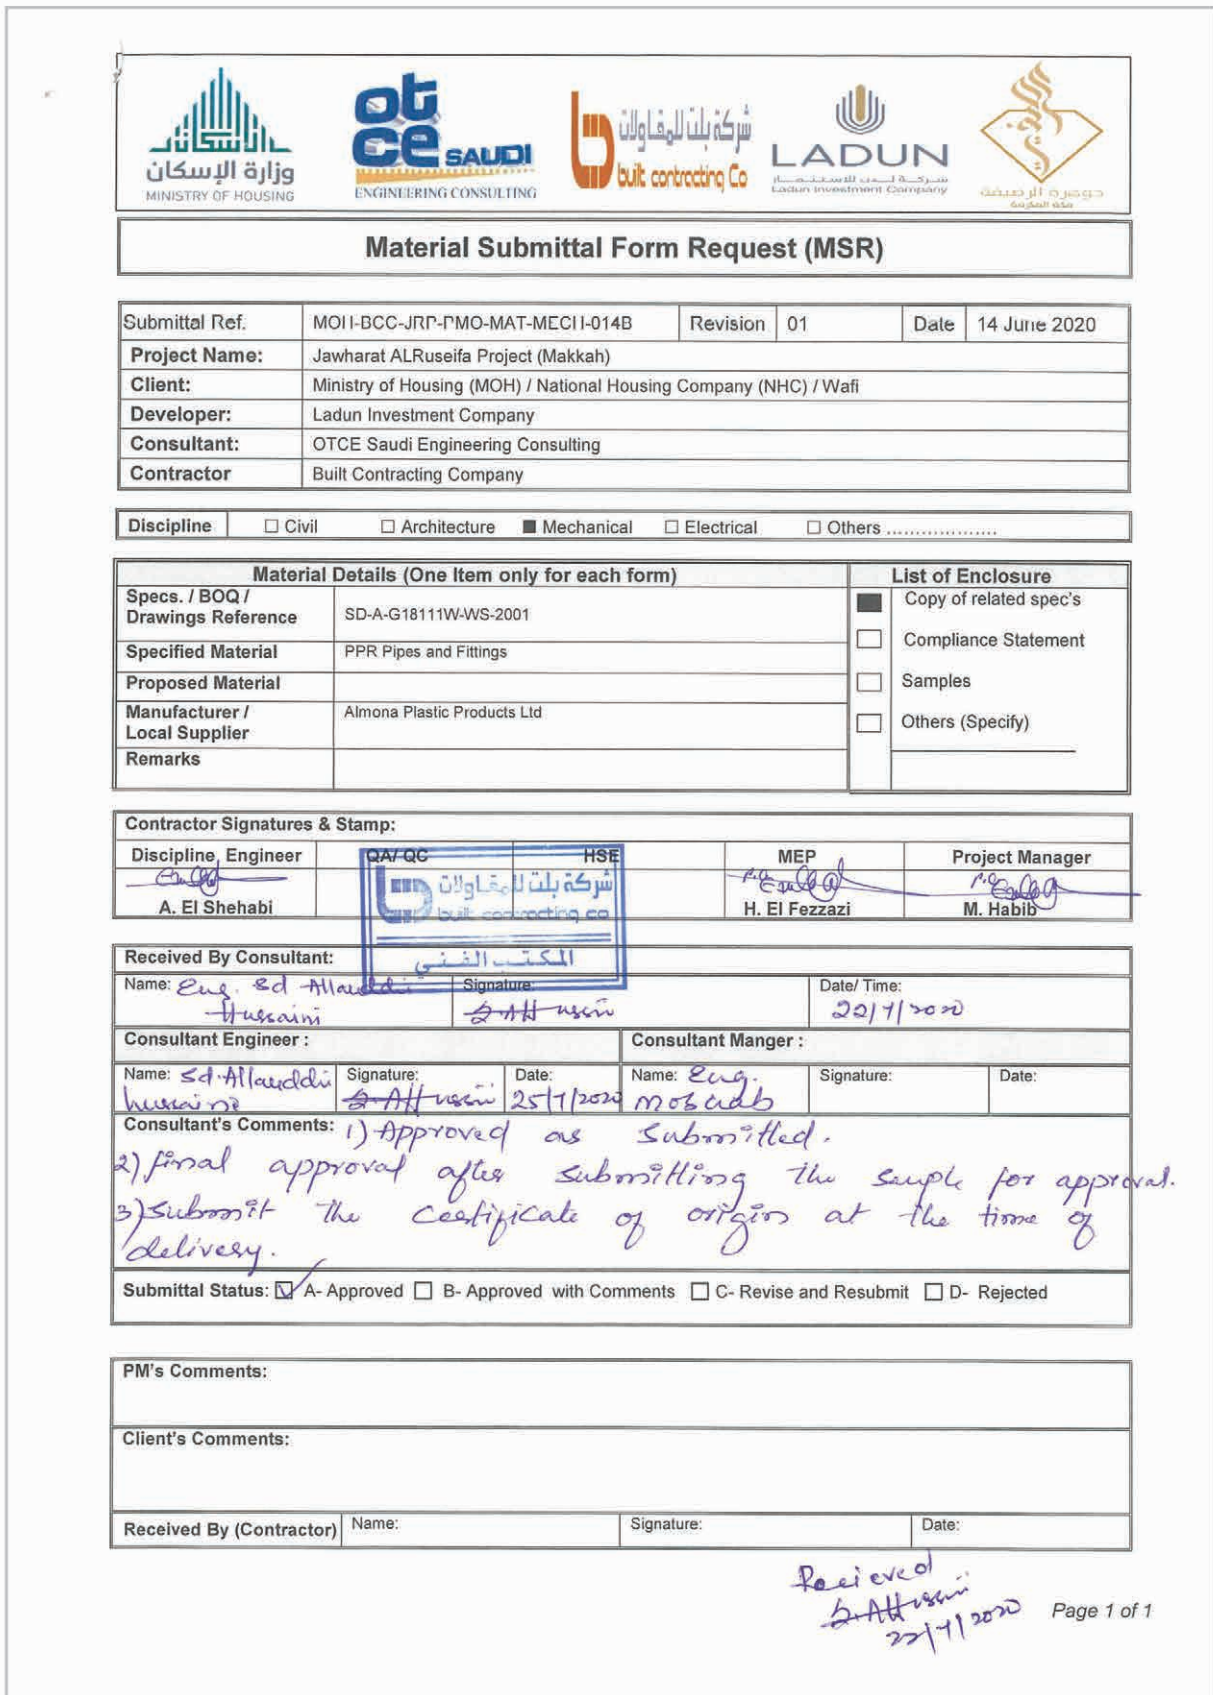 الإسكان
وزارة الإسكان
MINISTRY OF HOUSING
otce SAUDI
ENGINEERING CONSULTING
شركة بلت للمقاولات
built contracting Co
LADUN
شركة لدن للاستثمار
Ladun Investment Company
جوهرة الرصيفة
مكة المكرمة
Material Submittal Form Request (MSR)
Submittal Ref. MOH-BCC-JRP-PMO-MAT-MECH-014B Revision 01 Date 14 June 2020
Project Name: Jawharat ALRuseifa Project (Makkah)
Client: Ministry of Housing (MOH) / National Housing Company (NHC) / Wafi
Developer: Ladun Investment Company
Consultant: OTCE Saudi Engineering Consulting
Contractor Built Contracting Company
Discipline ☐ Civil ☐ Architecture ■ Mechanical ☐ Electrical ☐ Others ...................
Material Details (One Item only for each form) List of Enclosure
Specs. / BOQ /
Drawings Reference SD-A-G18111W-WS-2001
Copy of related spec's
Specified Material PPR Pipes and Fittings
Compliance Statement
Proposed Material
Samples
Manufacturer /
Local Supplier Almona Plastic Products Ltd
Others (Specify)
Remarks
Contractor Signatures & Stamp:
Discipline, Engineer QA/ QC HSE MEP Project Manager
شركة بلت للمقاولات
built contracting co
المكتب الفني
A. El Shehabi H. El Fezzazi M. Habib
Received By Consultant:
Name: Eng. Sd Allauddi Signature: Date/ Time:
Hussaini 22/7/2020
Consultant Engineer : Consultant Manger :
Name: Sd. Allauddi Signature: Date: Name: Eng. Signature: Date:
hussaini 25/7/2020 mosaab
Consultant's Comments: 1) Approved as submitted.
2) final approval after submitting the sample for approval.
3) Submit the Certificate of origin at the time of
delivery.
Submittal Status: ☑ A- Approved ☐ B- Approved with Comments ☐ C- Revise and Resubmit ☐ D- Rejected
PM's Comments:
Client's Comments:
Received By (Contractor) Name: Signature: Date:
Recieved
22/7/2020
Page 1 of 1